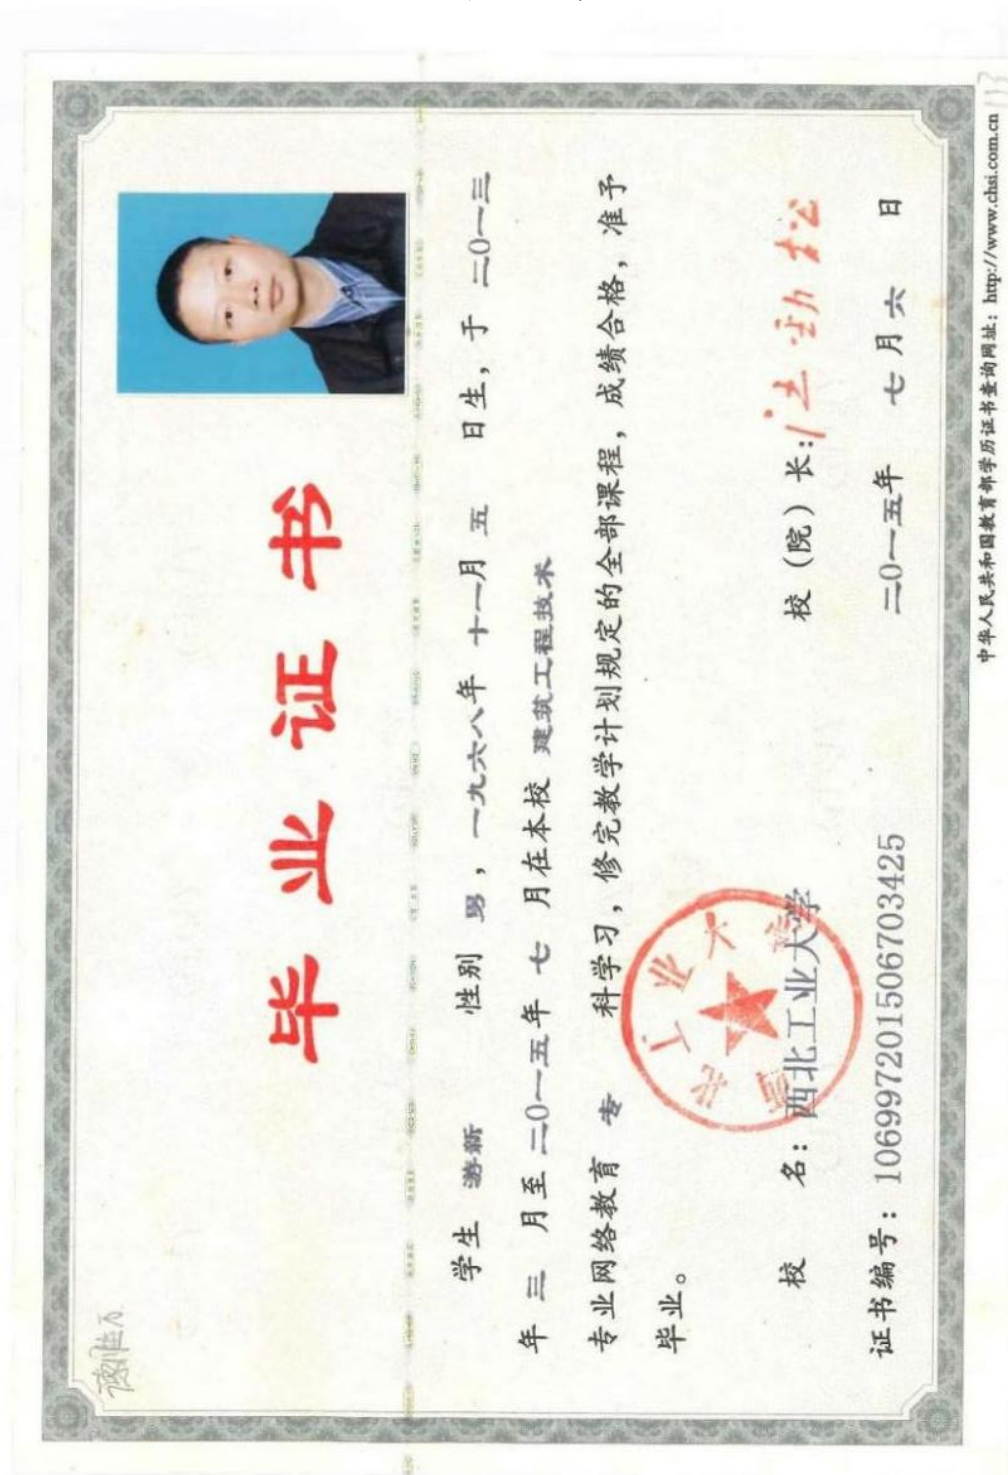 毕业证书
学生 游新 性别 男，一九六八年 十一月 五 日生，于 二〇一三
年 三 月至 二〇一五年 七 月在本校 建筑工程技术
专业网络教育 专 科学习，修完教学计划规定的全部课程，成绩合格，准予
毕业。
校 名：西北工业大学
校（院）长：汪劲松
西北工业大学
证书编号：106997201506703425
二〇一五年 七 月 六 日
中华人民共和国教育部学历证书查询网址：http://www.chsi.com.cn